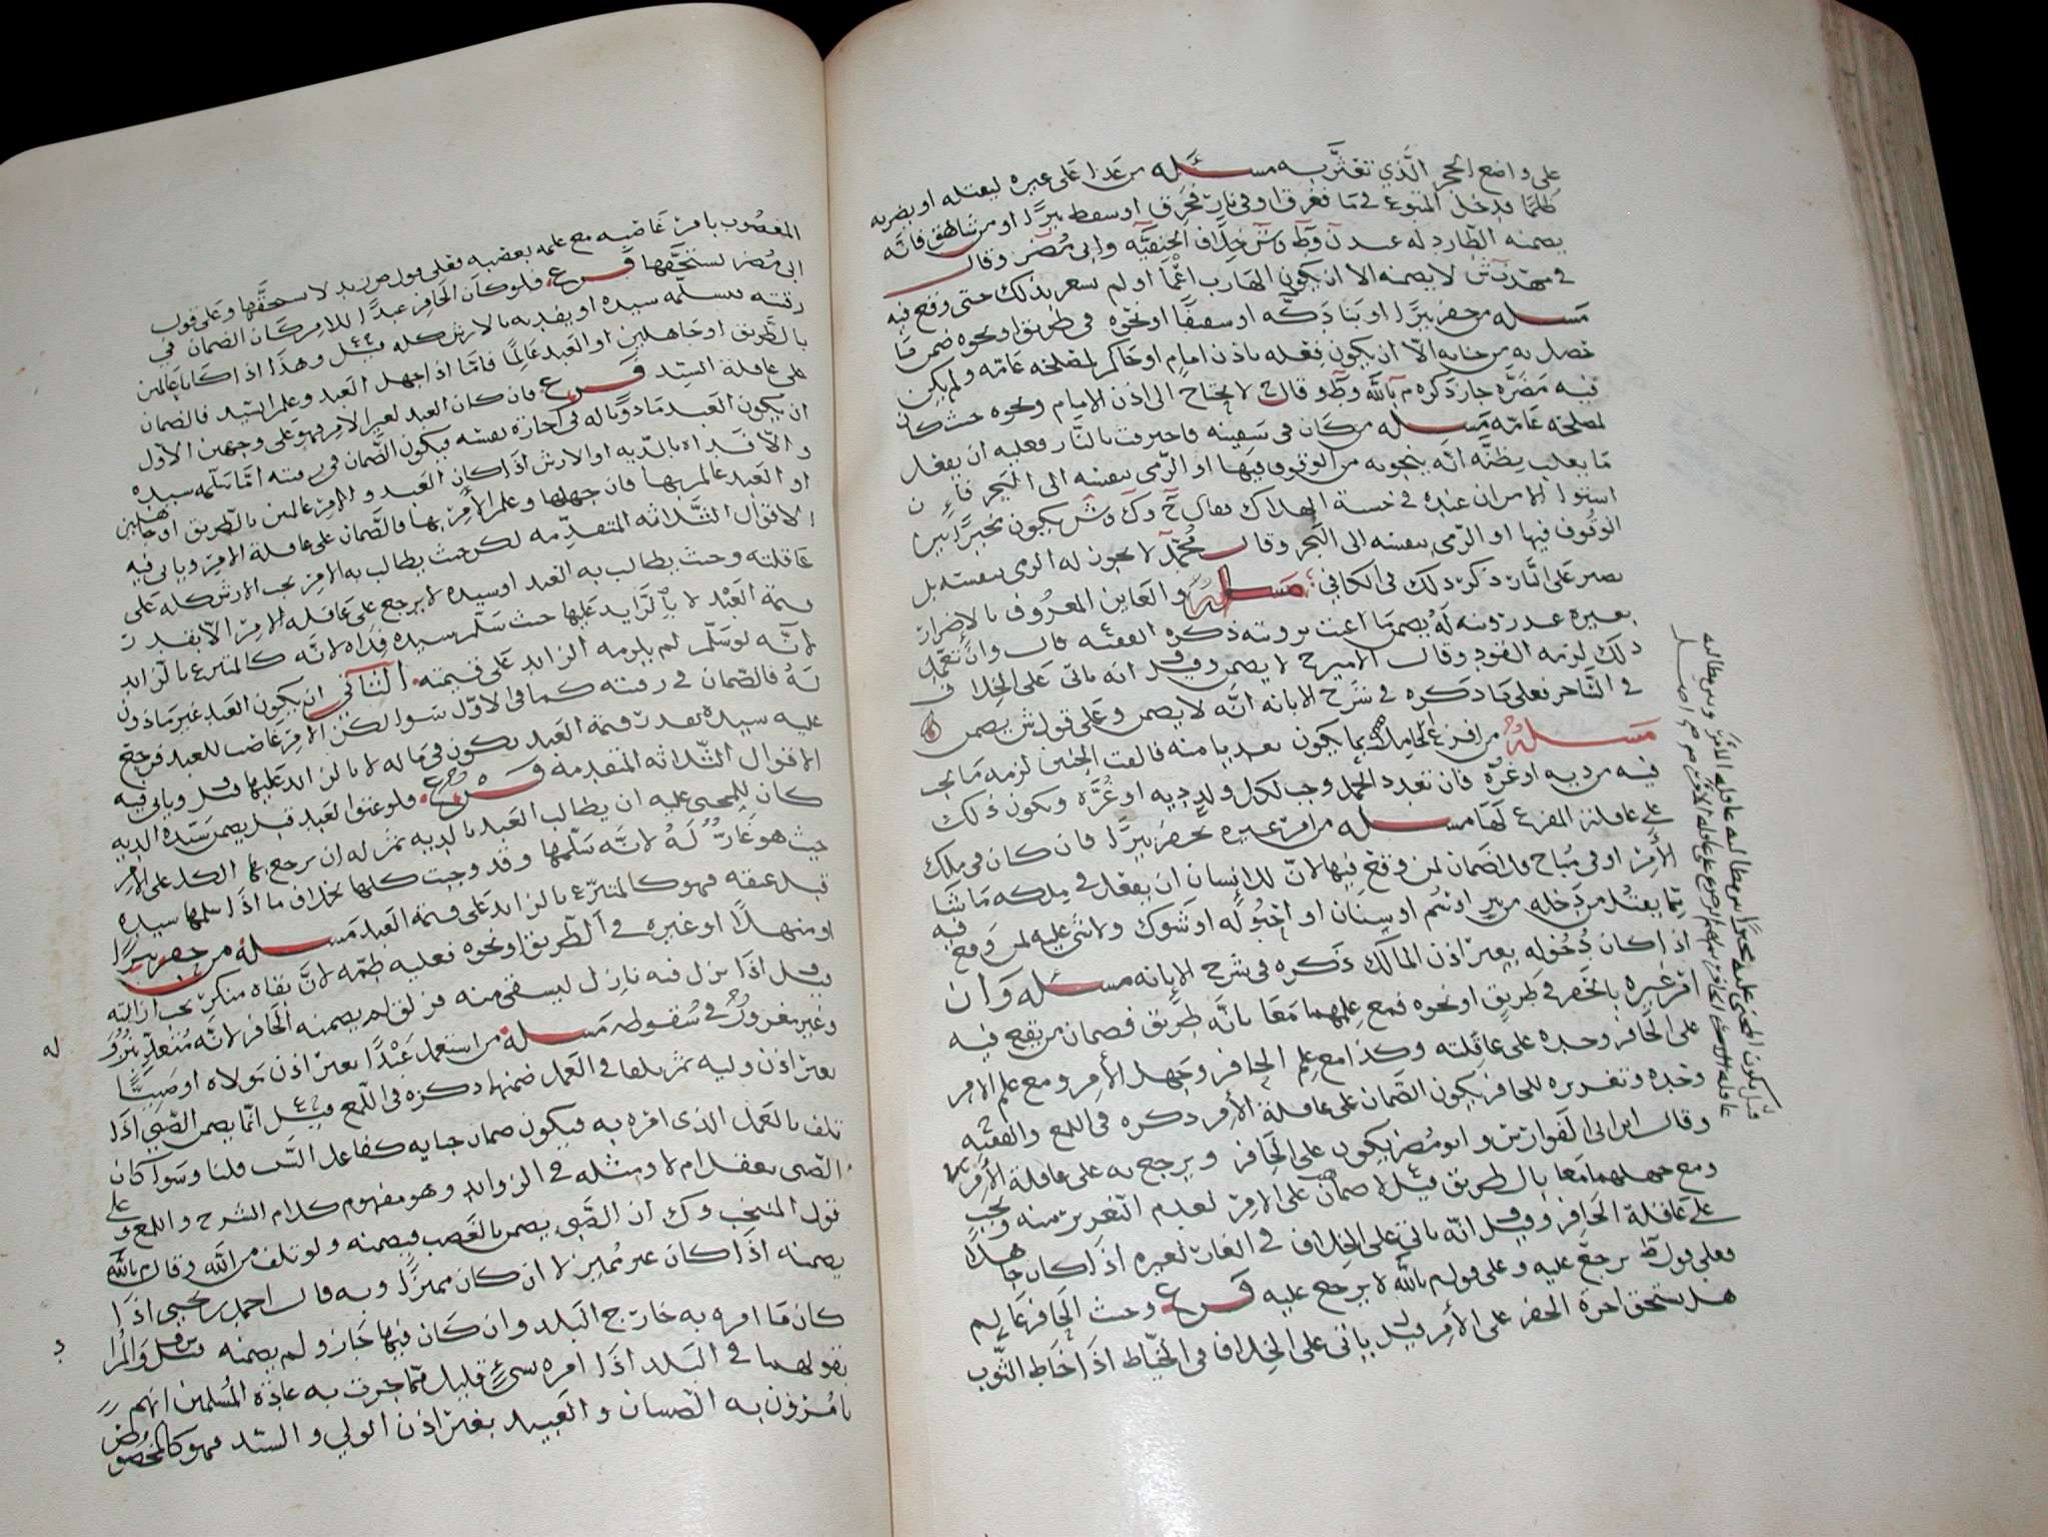 على واضع الحجر الذي تعثر به مسئله من عدا على غيره ليقتله او يضربه
ظلما فدخل المتبوع في ما فغرق او في نار فحرق او سقط بيرا او من شاهق فانه
يضمنه الطارد له عند ن وط وش خلاف الحنفيه وابي مضر وقال
في مهذب ش لا يضمنه الا ان يكون الهارب اعمى او لم يشعر بذلك حتى وقع فيه
مسله من حفر بيرا او بنا دكه او سقيفا او نحوه في طريق او نحوه ضمن ما
حصل به من جنايه الا ان يكون فعله باذن امام او حاكم لمصلحه عامه ولم يكن
فيه مضره جاز ذكره م بالله وط وقال ح لا يحتاج الى اذن الامام ونحوه حيث كان
لمصلحه عامه مسله من كان في سفينه فاحترقت بالنار فعليه ان يفعل
ما يغلب بظنه انه ينجو به من الوقوف فيها او الرمي بنفسه الى البحر فان
استوا الامران عنده في خشية الهلاك فقال ح وك وش يكون مخيرا بين
الوقوف فيها او الرمي بنفسه الى البحر وقال محمد لا يجوز له الرمي بنفسه بل
يصبر على النار ذكر ذلك في الكافي مسله والعاين المعروف بالاضرار
بغيره عند رؤيته له يضمن ما اعنت برؤيته ذكره الفقيه قال وان تعمد
ذلك لزمه القود وقال الامير ح لا يضمن وقيل انه ياتي على الخلاف
في الساحر فعلى ما ذكره في شرح الابانه انه لا يضمن وعلى قول ش يضمن
مسله من افزع الحامل بما يكون تعديا منه فالقت الجنين لزمه ما يجب
فيه من ديه او غره فان تعدد الحمل وجب لكل ولد ديه او غره ويكون ذلك
على عاقلة المفزع لها مسله من امر غيره بحفر بيرا فان كان في ملك
الامر او في مباح فلا ضمان لمن وقع فيها لان للانسان ان يفعل في ملكه ما شا
مما يقتل من دخله من بير او سم او سنان او احبوله او شوك ولا شي عليه لمن وقع فيه
اذا كان دخوله بغير اذن المالك ذكره في شرح الابانه مسئله وان
امر غيره بالحفر في طريق او نحوه فمع علمهما معا بانه طريق فضمان من يقع فيه
على الحافر وحده على عاقلته وكذا مع علم الحافر وجهل الامر ومع علم الامر
وحده وتغريره للحافر يكون الضمان على عاقلة الامر ذكره في اللمع والفقيه
وقال ابن ابي الفوارس وابو مضر يكون على الحافر ويرجع به على عاقلة الامر
ومع جهلهما معا بالطريق قيل لا ضمان على الامر لعدم التغرير منه ويجب
على عاقلة الحافر وقيل انه ياتي على الخلاف في الغار لغيره اذا كان جاهلا
فعلى قول ط يرجع عليه وعلى قول م بالله لا يرجع عليه فرع وحيث الحافر عالم
هل يستحق اجرة الحفر على الامر قيل ياتي على الخلاف في الخياط اذا خاط الثوب
المغصوب بامر غاصبه مع علمه بغصبه فعلى قول ص زيد لا يستحقها وعلى قول
ابي مضر يستحقها فرع فلو كان الحافر عبدا للامر كان الضمان في
رقبته يسلمه سيده او يفديه بالارش كله قيل وهذا اذا كانا عالمين
بالطريق او جاهلين او العبد عالما فاما اذا جهل العبد وعلم السيد فالضمان
على عاقلة السيد فرع فان كان العبد لغير الامر فهو على وجهين الاول
ان يكون العبد ماذونا له في اجارة نفسه فيكون الضمان في رقبته اما سلمه سيده
والا فداه بالديه او الارش اذا كان العبد والامر عالمين بالطريق او جاهلين
او العبد عالم بها فان جهلها وعلم الامر بها فالضمان على عاقلة الامر وياتي فيه
الاقوال الثلاثه المتقدمه لكن حيث يطالب به الامر يجب الارش كله على
عاقلته وحيث يطالب به العبد او سيده لا يرجع على عاقلة الامر الا بقدر
قيمة العبد لا بالزايد عليها حيث سلم سيده فداه لانه كالمتبرع بالزايد
لانه لو سلم لم يلزمه الزايد على قيمته الثاني ان يكون العبد غير ماذون
له فالضمان في رقبته كما في الاول سوا لكن الامر غاصب للعبد فيرجع
عليه سيده بقدر قيمة العبد يكون في ماله لا بالزايد عليها قيل وياتي فيه
الاقوال الثلاثه المتقدمه فرع فلو عتق العبد قبل يضمن سيده الديه
كان للمجني عليه ان يطالب العبد بالديه ثم له ان يرجع بها الكل على الامر
حيث هو غار له لانه سلمها وقد وجبت كلها بخلاف ما اذا سلمها سيده
قبل عتقه فهو كالمتبرع بالزايد على قيمة العبد مسله من حفر بيرا
او منهلا او غيره في الطريق او نحوه فعليه طمه لان بقاه منكر يجب ازالته
وقيل اذا نزل فيه نازل ليسقي منه فزلق لم يضمنه الحافر لانه متعد بنزوله
وغير مغرور في سقوطه مسله من استعمل عبدا بغير اذن مولاه او صبيا
بغير اذن وليه ثم تلفا في العمل ضمنهما ذكره في اللمع قيل انما يضمن الصبي اذا
تلف بالعمل الذي امره به فيكون ضمان جنايه كفاعل السبب قلنا وسوا كان
الصبي يعقل ام لا ومثله في الزوايد وهو مفهوم كلام الشرح واللمع وعلى
قول المنتخب وك ان الصبي يضمن بالغصب فيضمنه ولو تلف من الله وقال م بالله
يضمنه اذا كان غير مميز لا ان كان مميزا وبه قال احمد بن يحيى اذا
كان ما امره به خارج البلد وان كان فيها جاز ولم يضمنه قيل والمراد
بقولهما في البلد اذا امره بشي قليل مما جرت به عادة المسلمين انهم
يامرون به الصبيان والعبيد بغير اذن الولي والسيد فهو كالمخصوص